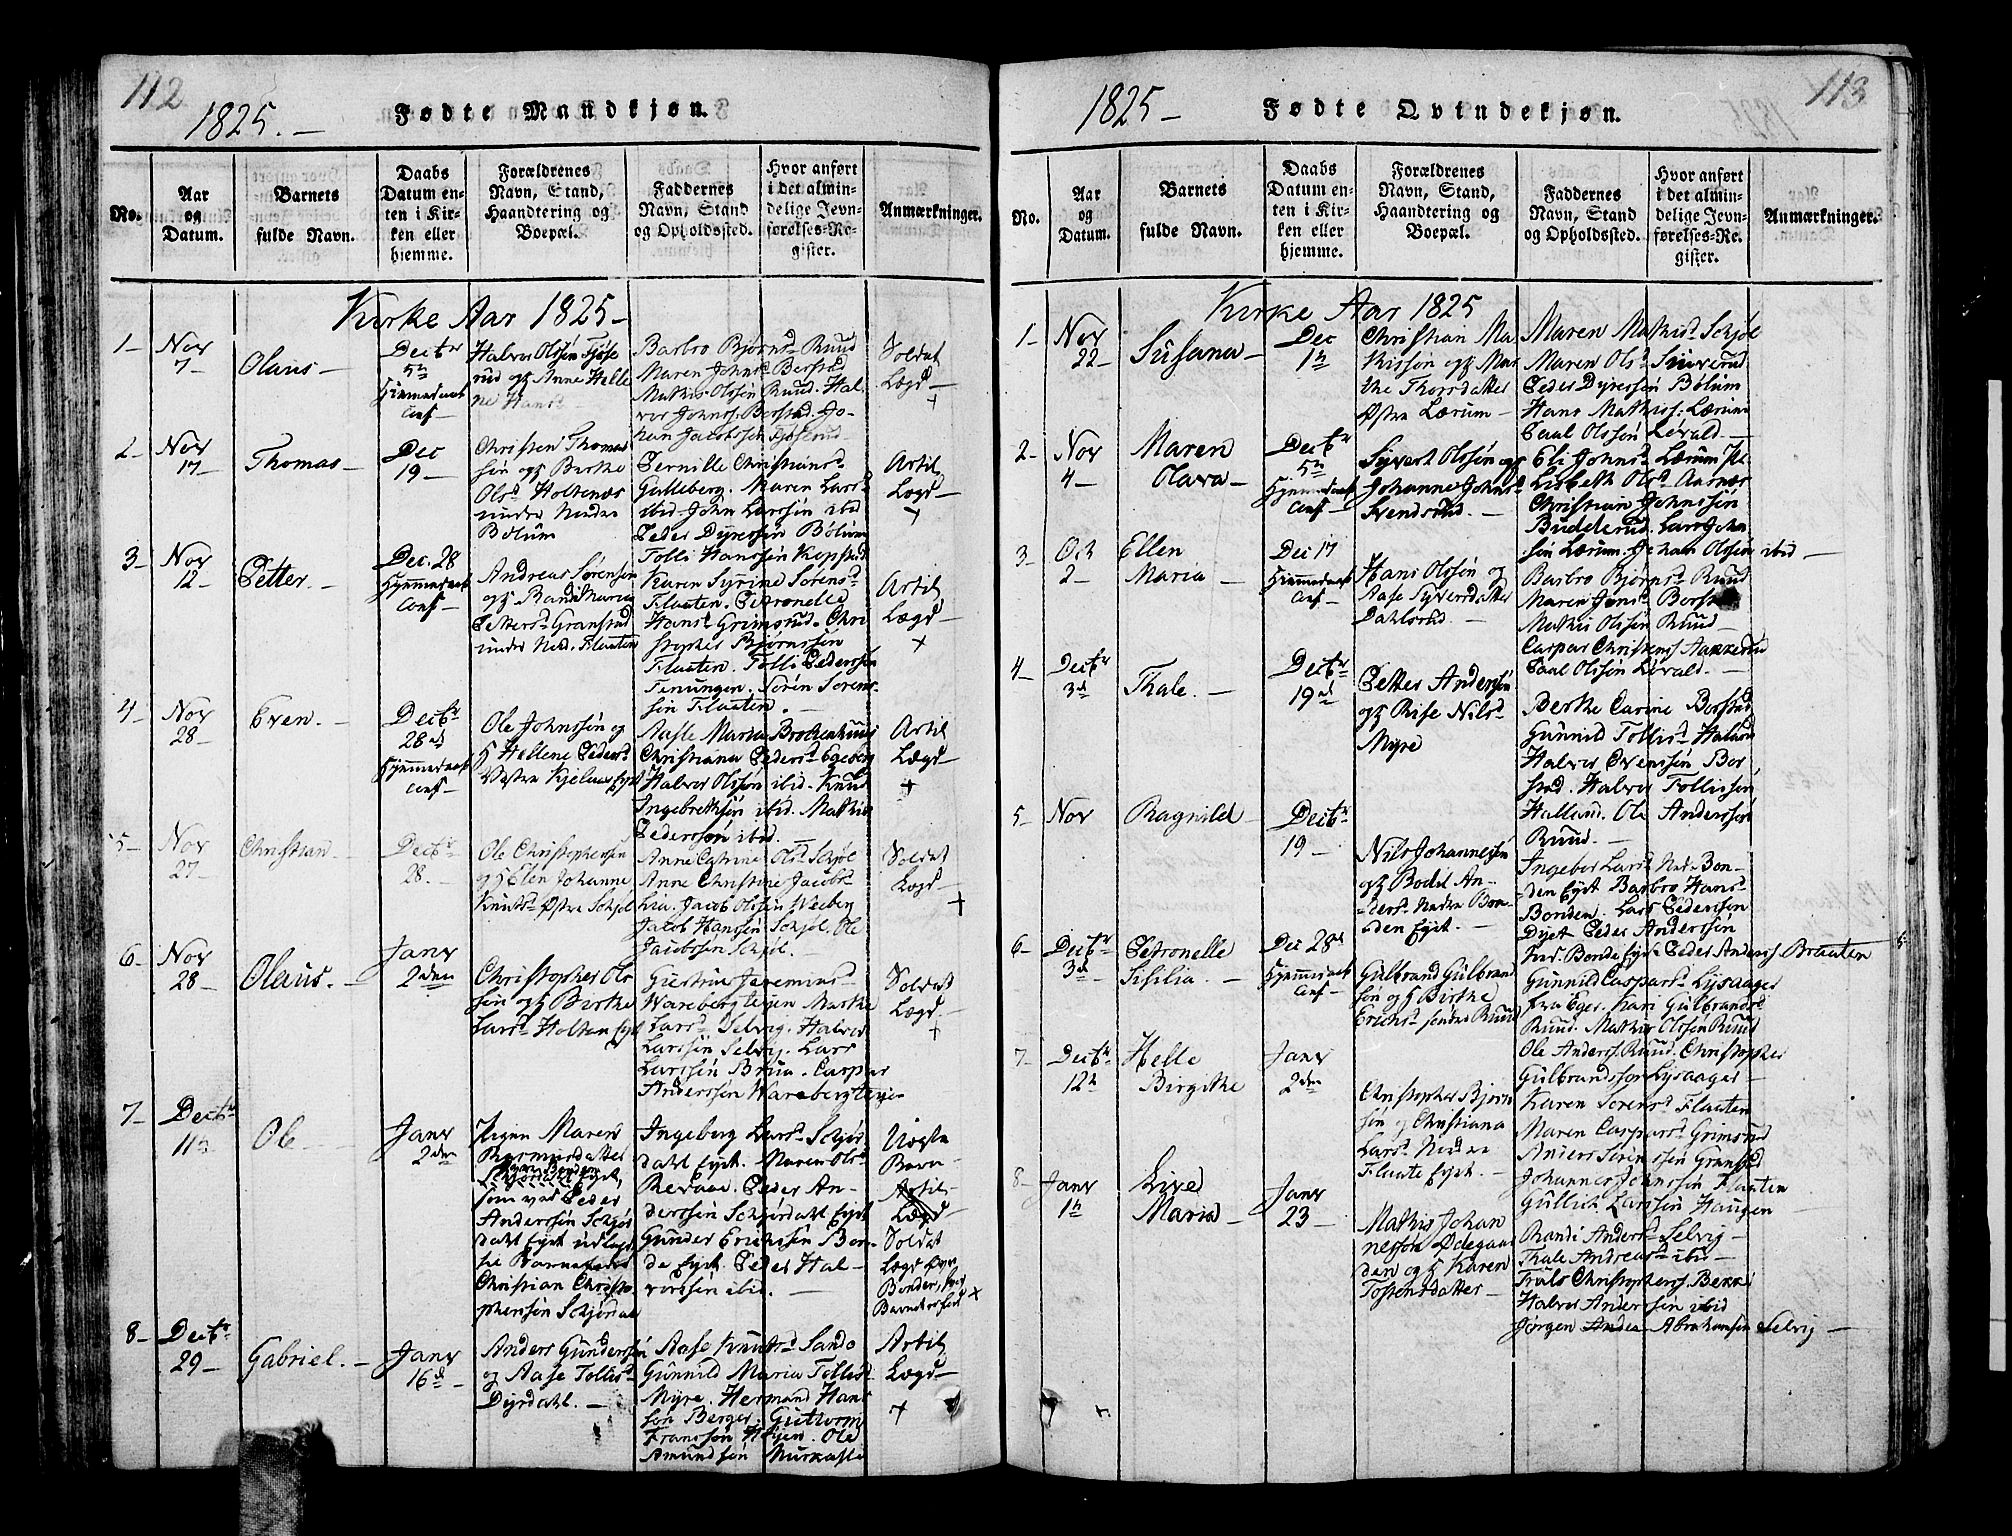 112
1825. —
Fødte Mandkjøn.
No.
Aar og Datum.
Barnets fulde Navn.
Daabs Datum enten i Kirken eller hjemme.
Forældrenes Navn, Stand, Haandtering og Boepæl.
Faddernes Navn, Stand og Opholdssted.
Hvor anført i det almindelige Jevnførelses-Register.
Anmærkninger.
Kirke Aar 1825 —
1 —
Nov 7 —
Olaus —
Decbr 5n
Hjemmedøbt Conf —
Halvor Olssøn Fjøse
rud og Anne Helle
ne Hansd
Barbro Bjørnsd Ruud
Maren Johnsd Borstad
Mathis Olssøn Ruud. Hal
vor Johnss. Borstad. Jo-
han Jacobssøn Fjøserud
Soldat
Lægd —
+
2 —
Nov 17 —
Thomas —
Dec 19 —
Christen Thomas
søn og Berthe
Olsd Holtenæs
under Nedre
Bølum
Pernille Christiansd
Gulleberg. Maren Larsd
ibid. John Larssøn ibid
Peder Dyressøn Bølum
Tolli Hanssøn Kopstad
Artil
Lægd —
+
3 —
Nov 12 —
Petter. —
Dec. 28
Hjemmedøbt Conf —
Andreas Sørensen
og Randi Maria
Pettersd Granstad
under Ned. Flaaten
Karen Syrine Sørensd
Flaaten. Petronelle
Hansd Grimsrud. Chri
stopher Bjørnssøn
Flaaten. Tolli Pederssøn
Tenungen. Søren Sørens-
søn Flaaten. —
Artil
Lægd —
+
4 —
Nov 28 —
Even. —
Decbr 28de
Hjemmedøbt Conf —
Ole Johnssøn og
Hellene Pedersd
Vestre Kjelaas Eyet
Aasle Maria Brochenhuus
Christiana Pedersd Egeberg
Halvor Olssøn ibid. Knud
Ingebrethsøn ibid. Mathis
Pederssøn ibid.
Artil
Lægd —
+
5 —
Nov 27 —
Christian —
Decbr 28. —
Ole Christophersen
og Elen Johanne
Knutsd Østre Schjøl
Anne Catrine Olsd Schjøl
Anne Christine Jacobsd
Lia. Jacob Olssøn Weeberg
Jacob Hanssøn Schjøl. Ole
Jacobssøn Schjøl. —
Soldat
Lægd —
+
6 —
Nov 28 —
Olaus. —
Janv 2den
Christopher Ols
søn og Birthe
Larsd Holten Eyet
Giertrue Jeremiasd
Wareberg Eyen Marthe
Larsd Selvig. Halvor
Larssøn Selvig. Lars
Larssøn Bruu. Caspar
Anderssøn Wareberg Eyen
Soldat
Lægd. —
+
7 —
Decbr 11te
Ole —
Janv 2den
Pigen Maren
som ved Peder
Anderssøn Schjør
dahl Eyet udlagde
til Barnefader
Christian Christo
phersøn Schjørdal
Ingeborg Larsd Schjør
dahl Eyet. Maren Olsd
Revaae. Peder An-
derssøn Schjørdahl Eyet
Gunder Erichsøn Bon-
de Eyet. Peder Hal-
vorssøn ibid. —
Uægte
Barn —
Artil
Lægd
Soldat
Lægd
+
8 —
Decbr 29 —
Gabriel. —
Janv 16d —
Anders Gunderssøn
og Aase Tollisd
Dyrdahl. —
Aase Knutsd Sando
Gunnild Maria Tollisd
Myre. Hermand Hans
søn Berger. Guttorm
Franssøn Wiyen. Ole
Amundsøn Murkaste
Artil
Lægd —
+
113
1825 —
Fødte Qvindekjøn.
No.
Aar og Datum.
Barnets fulde Navn.
Daabs Datum enten i Kirken eller hjemme.
Forældrenes Navn, Stand, Haandtering og Boepæl.
Faddernes Navn, Stand og Opholdssted.
Hvor anført i det almindelige Jevnførelses-Register.
Anmærkninger.
Kirke Aar 1825
1 —
Nov 22 —
Susana —
Dec 1n
Christian Ma
thissøn og Mar
the Thorsdatter
Østre Lærum —
Maren Mathisd Schjøl
Maren Olsd Snverud
Peder Dyressøn Bølum
Hans Mathiss. Lærum
Paal Olssøn Løvald —
2 —
Nov 4 —
Maren
Olava —
Decbr 5n
Hjemmedøbt Conf —
Syvert Olssøn og
Johanne Johnsd
Svendsrud. —
Eli Johnsd Lærum
Lisbeth Olsd Aasnæs
Christian Johnssøn
Budderud. Lars John
søn Lærum. Johan Olssøn ibid —
3 —
Oct 2 —
Ellen
Maria —
Dec 17
Hjemmedøbt Conf —
Hans Olssøn og
Aase Syversdatter
Dahlsrud. —
Barbro Bjørnsd Ruud
Maren Jonsd Borstad
Mathis Olssøn Ruud —
Caspar Christens. Aakkerud
Paal Olssøn Løvald. —
4 —
Decbr 3d
Thale. —
Decbr 19de
Petter Anderssøn
og Rise Nilsd
Myre
Berthe Carine Borstad
Gunnild Tollisd Halland
Halvor Evenssøn Bor
stad. Halvor Tollissøn
Halland. Ole Anderssøn
Ruud. —
5 —
Nov
Ragnild —
Decbr 19 —
Nils Johannesen
og Bodil An-
dersd Nedre Bon-
den Eyet. —
Ingebor Larsd Nedr Bon-
den Eyet Barbro Hansd
Bonden. Lars Pederssøn
Dyet Peder Anderssøn
Ned. Bonde Eye. Peder Anders. Braaten
6 —
Decbr 3d
Petronelle
Sisilia. —
Dec 28d
Hjemmedøbt Conf —
Gulbrand Gulbrand
søn og Birthe
Erichsd søndre Ruud
Gunnild Caspersd Lysaager
fra Eger. Kari Gulbrandsd
Ruud. Mathis Olssøn Ruud
Ole Anderss. Ruud. Christopher
Gulbrandssøn Lysaager —
7 —
Decbr 12te
Helle
Birgithe
Janv 2den
Christopher Bjørn
søn og Christiana
Larsd Nedre
Flaate Eyet. —
Karen Sørensd Flaaten
Maren Caspersd Grimsrud
Anders Sørenssøn Granstad
Johannes Johnssøn Flaaten
Gullich Larssøn Haugen —
8 —
Janv 1te
Live
Maria —
Janv 23 —
Mathis Johan
nessøn Ødegaar
den og Karen
Tostensdatter —
Randi Andersd Selvig —
Thale Andreasd ibid —
Truls Christophers. Bekke
Halvor Anderssøn ibid
Jørgen Abrahamsen Selvig —